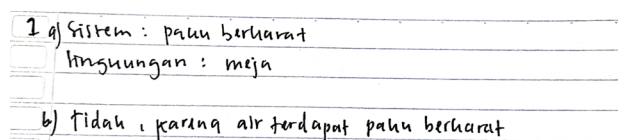 1 a) Sistem : paku berkarat
lingkungan : meja
b) tidak, karena air terdapat paku berkarat